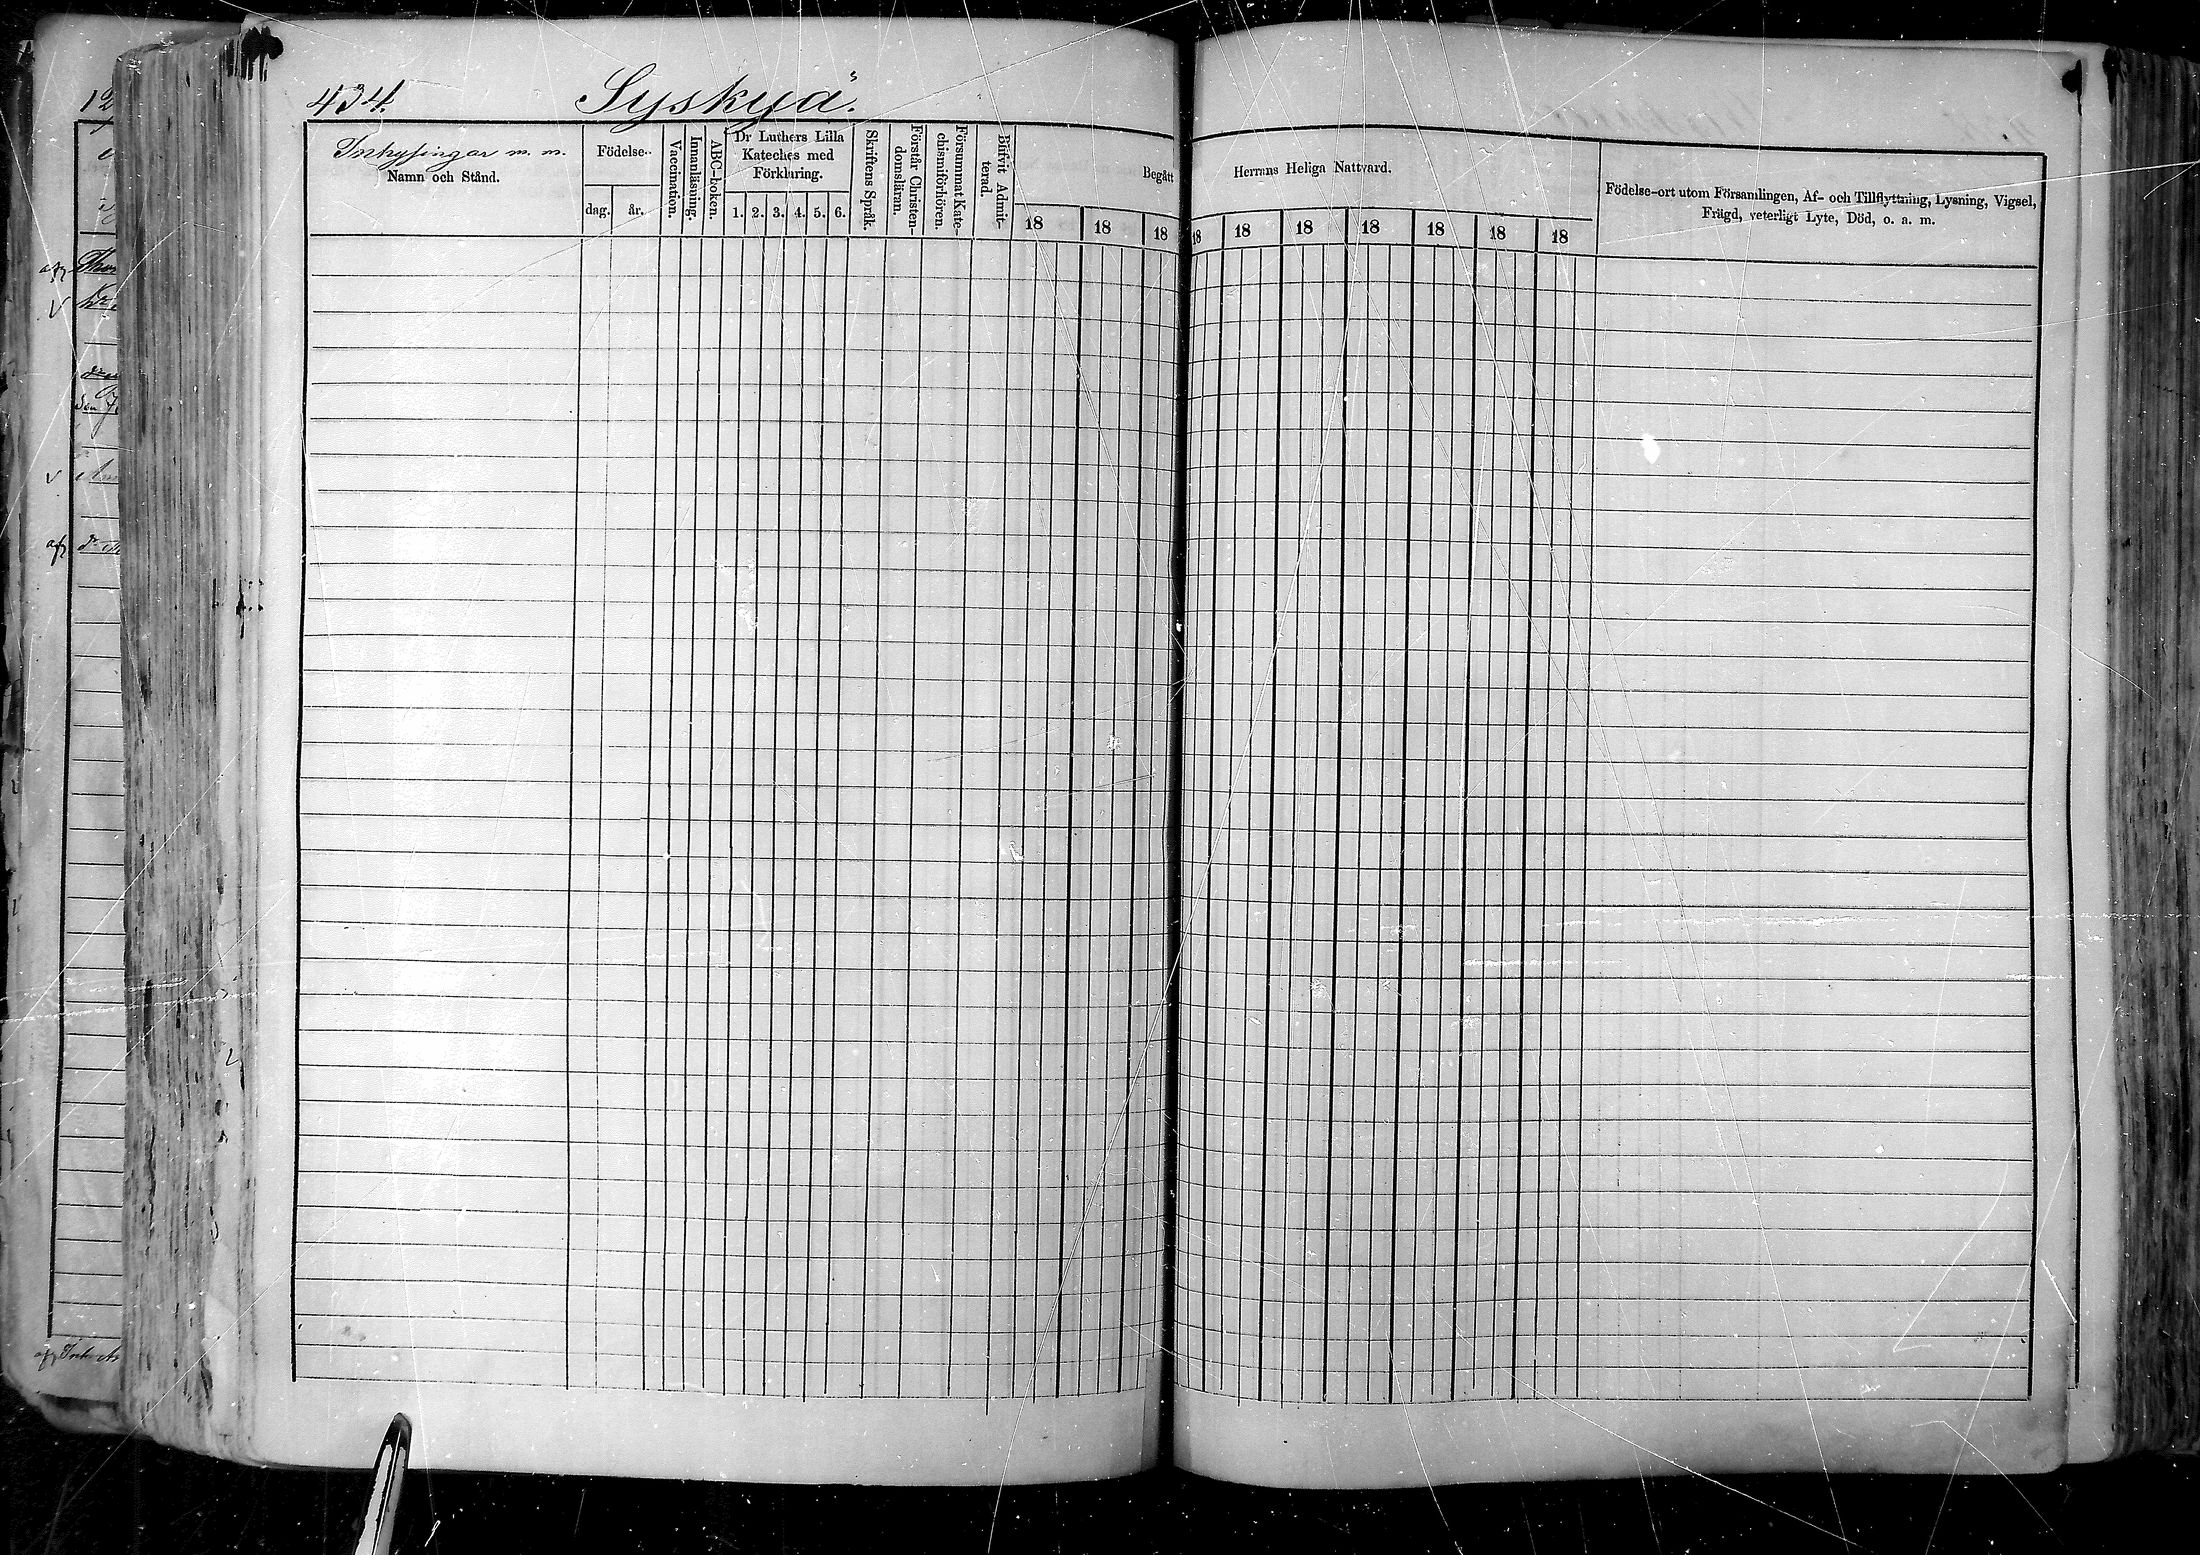 434. Syskyä.
Inhysingar m. m.
Namn och Stånd.
Födelse-
dag. år.
Vaccination.
Innanläsning.
ABC-boken.
Dr Luthers Lilla
Kateches med
Förklaring.
1. 2. 3. 4. 5. 6.
Skriftens Språk.
Förstår Christen-
domsläran.
Försummat Kate-
chismiförhören.
Blifvit Admit-
terad.
Begått Herrans Heliga Nattvard.
18 18 18 18 18 18 18 18 18 18
Födelse-ort utom Församlingen, Af- och Tillflyttning, Lysning, Vigsel,
Frägd, veterligt Lyte, Död, o. a. m.